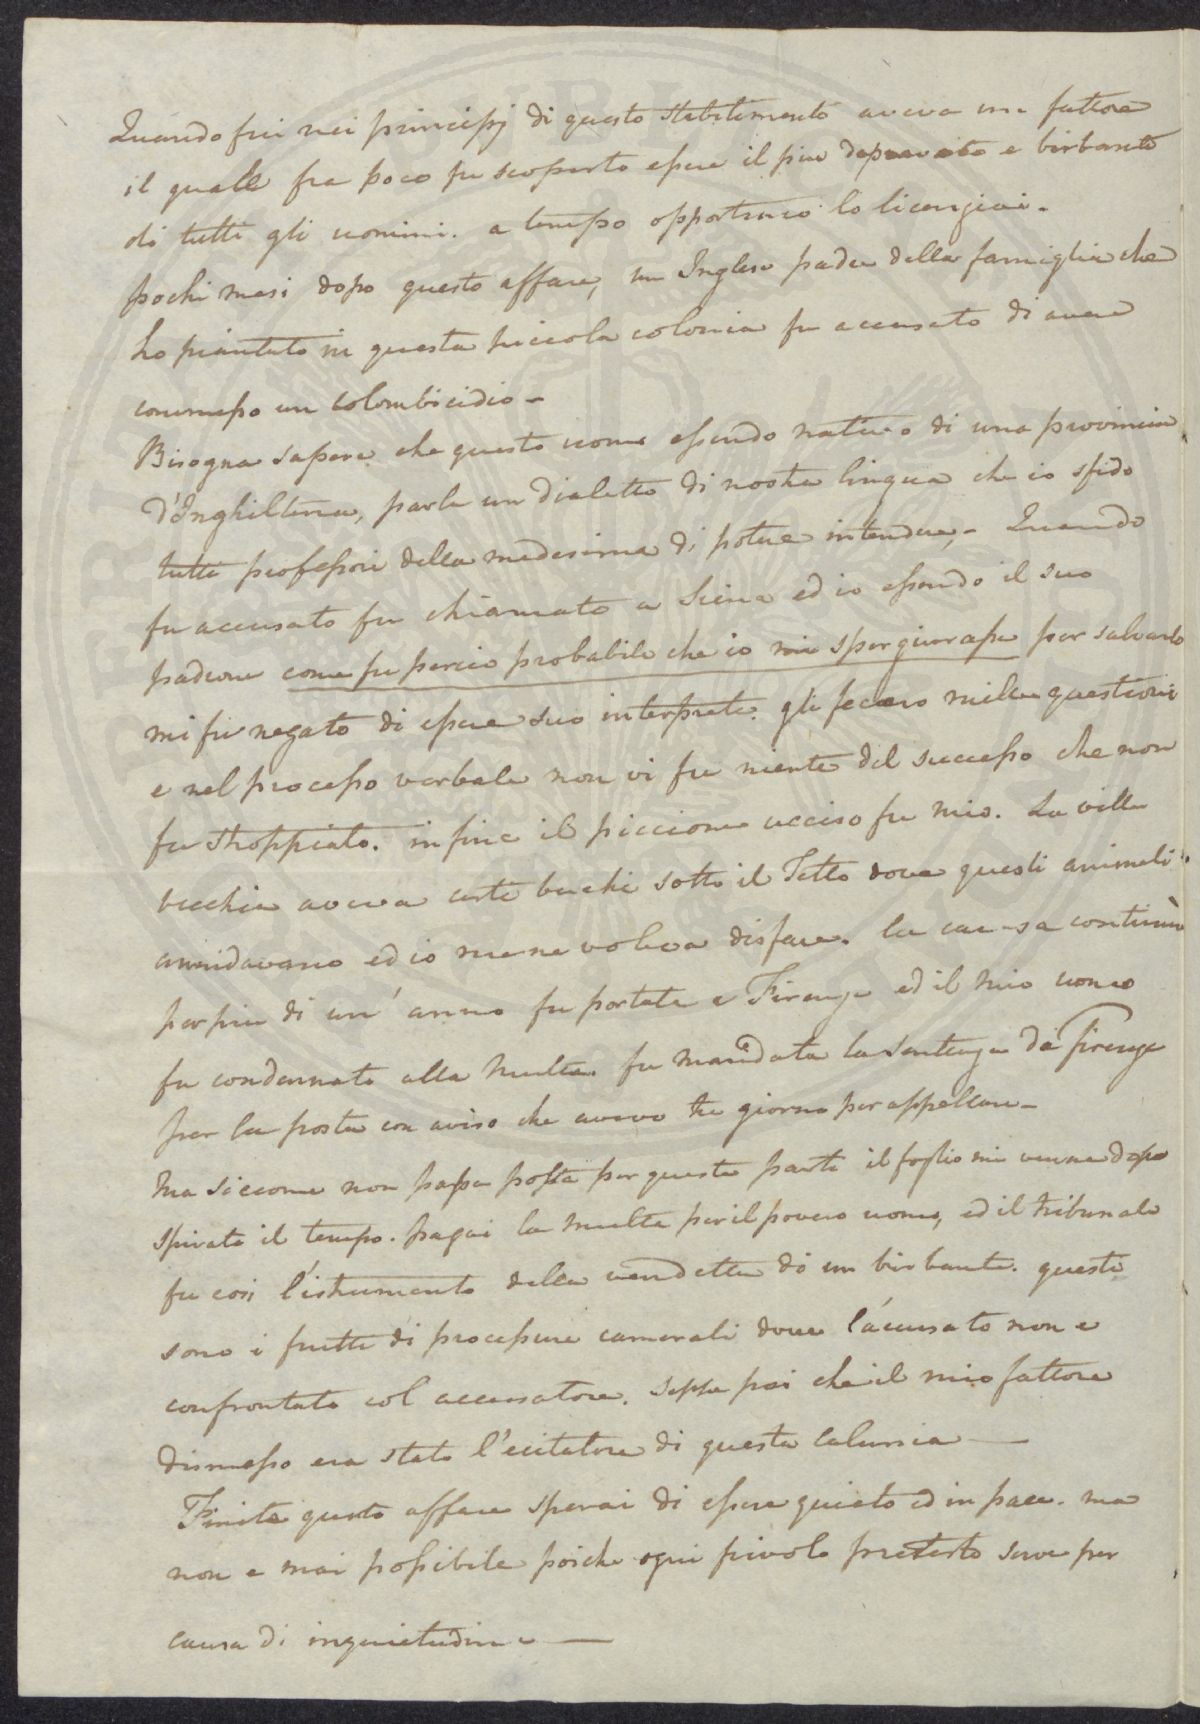 Quando fui nei principj di questo stabilimento aveva un fattore
il qualle fra poco fu scoperto essere il piu depravato e birbante
di tutti gli uomini. a tempo opportuno lo licenziai.
pochi mesi dopo questo affare, un Inglese padre della famiglia che
ho piantato in questa piccola colonia fu accusato di avere
commesso un colombicidio -
Bisogna sapere che questo uomo essendo nativo di una provincia
d'Inghilterra, parla un dialetto di nostra lingua che io sfido
tutti professori della medesima di potere intendere, - Quando
fu accusato fu chiamato a Siena ed io essendo il suo
padrone come fu percio probabile che io mi spergiurasse per salvarlo
mi fu negato di essere suo interprete. gli fecero mille questioni
e nel processo verbale non vi fu niente del successo che non
fu stroppiato. in fine il piccione ucciso fu mio. La villa
vecchia aveva certi buchi sotto il Tetto dove questi animali
annidavano ed io me ne voleva disfare. la causa continuò
per piu di un' anno fu portata a Firenze ed il mio uomo
fu condannato alla multa. fu mandata la sentenza da Firenze
per la posta con aviso che avevo tre giorni per appellare -
Ma siccome non passa posta per queste parti il foglio mi venne dopo
spirato il tempo. pagai la multa per il povero uomo, ed il tribunale
fu cosi l'istrumento della vendetta di un birbante. questi
sono i frutti di procesure camerali dove l'accusato non e
confrontato col accusatore. seppe poi che il mio fattore
dismesso era stato l'ecitatore di questa calunia —
Finito questo affare sperai di essere quieto ed in pace. ma
non e mai possibile poiche ogni frivolo pretesto serve per
causa di inquietudine —